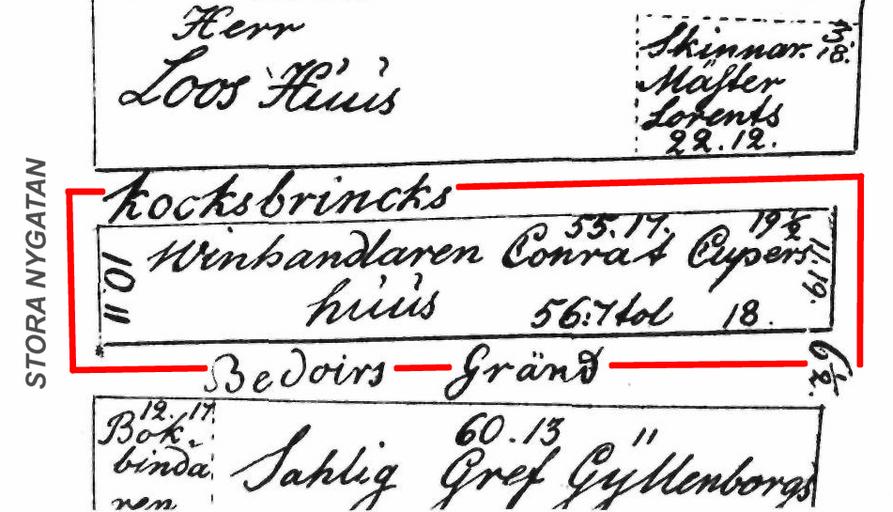 Herr
Loos Húús
Skinnar.
Mäster
Lorents
22.12.
3
18.
STORA NYGATAN
Kocksbrincks
55.17. 19½
Winhandlaren Conrat Cupers
húús 56:7 tol 18.
10.11
11.19.
Bedoirs Gränd 6½.
12.17
Bok-
binda
ren
60.13 "
Sahlig Gref Gÿllenborgs